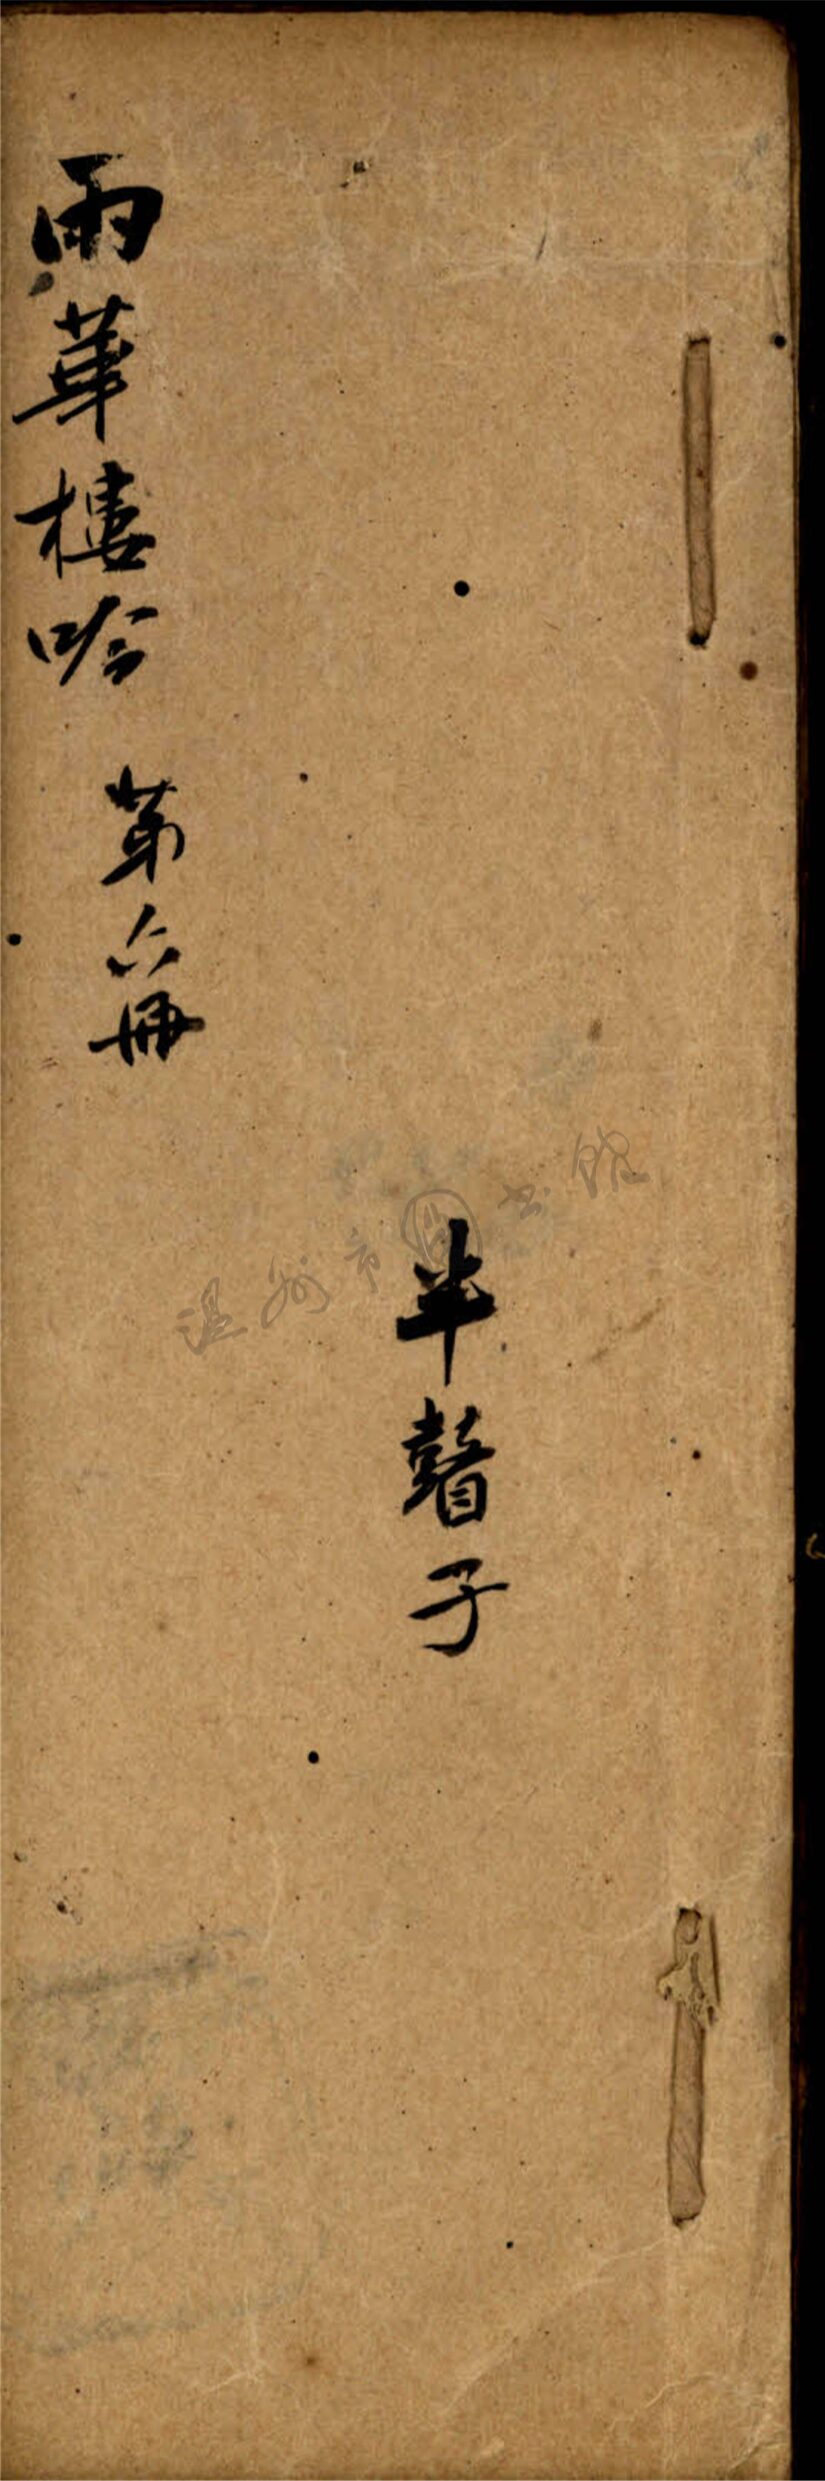 半瞽子
雨華樓吟 第六冊
温州市圖书馆